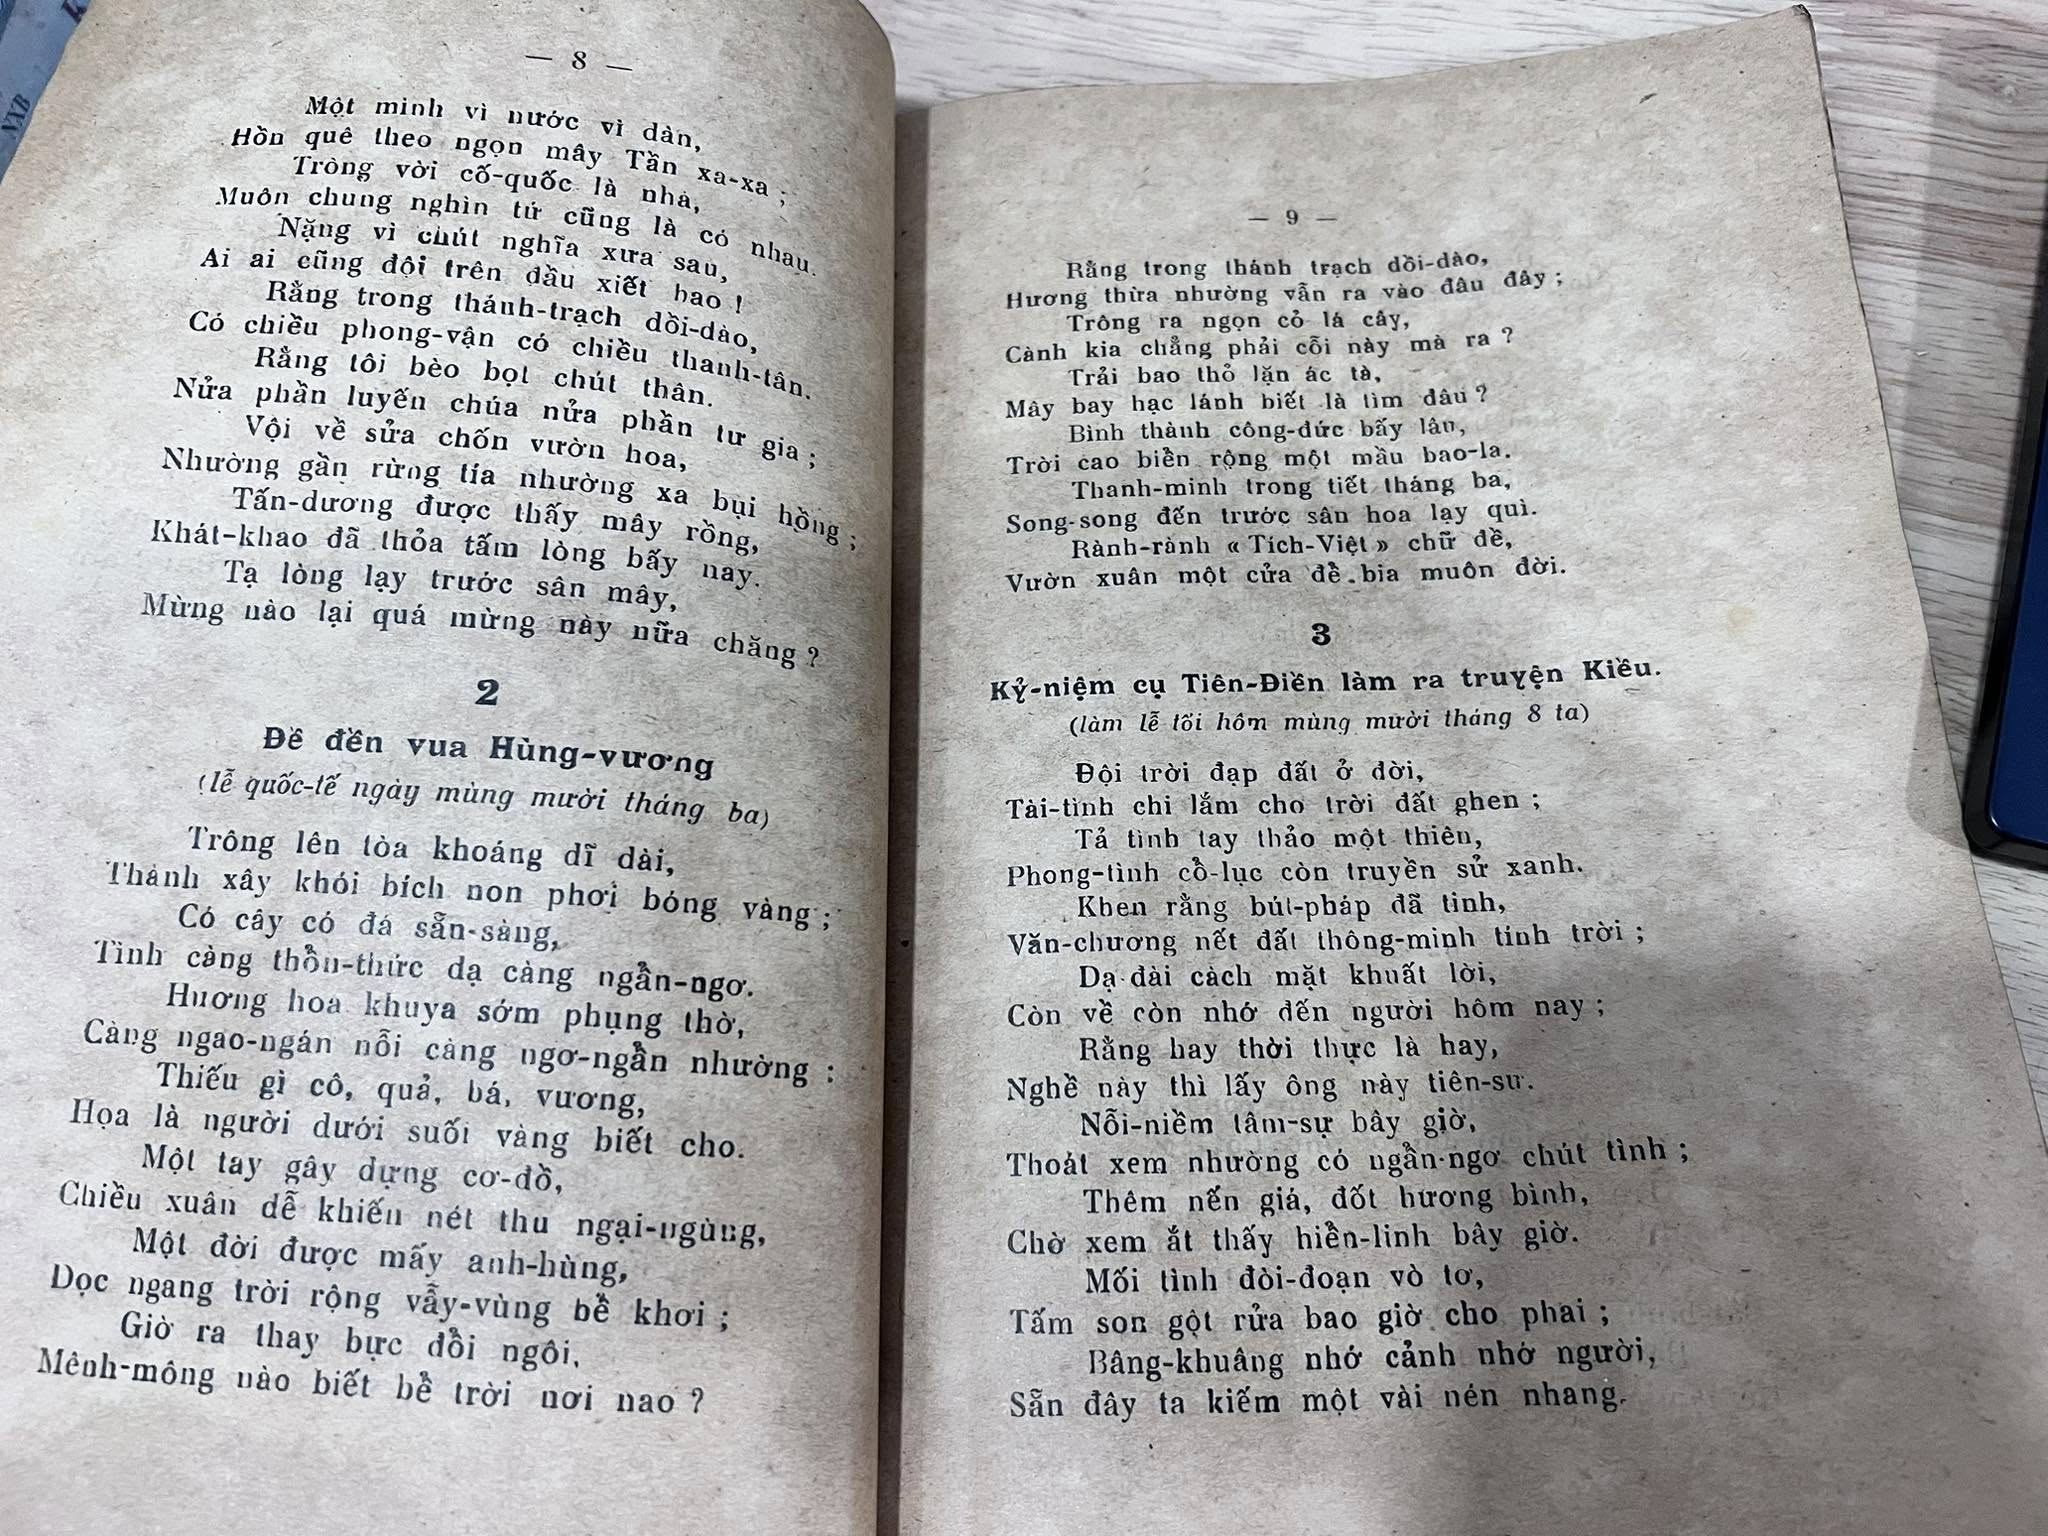 — 8 —
Một mình vì nước vì dàn,
Hồn quê theo ngọn mây Tần xa-xa ;
Tròng vời cố-quốc là nhà,
Muôn chung nghìn tứ cũng là có nhau.
Nặng vì chút nghĩa xưa sau,
Ai ai cũng đội trên đầu xiết bao !
Rằng trong thánh-trạch dồi-dào,
Có chiều phong-vận có chiều thanh-tân.
Rằng tôi bèo bọt chút thân.
Nửa phần luyến chúa nửa phần tư gia ;
Vội về sửa chốn vườn hoa,
Nhường gần rừng tía nhường xa bụi hồng ;
Tấn-dương được thấy mây rồng,
Khát-khao đã thỏa tấm lòng bấy nay.
Tạ lòng lạy trước sân mây,
Mừng nào lại quá mừng này nữa chăng ?
2
Đề đền vua Hùng-vương
(lễ quốc-tế ngày mùng mười tháng ba)
Trông lên tòa khoáng dĩ dài,
Thành xây khói bích non phơi bóng vàng ;
Có cây có đá sẵn-sàng,
Tình càng thổn-thức dạ càng ngẩn-ngơ.
Hương hoa khuya sớm phụng thờ,
Càng ngao-ngán nỗi càng ngơ-ngẩn nhường :
Thiếu gì cô, quả, bá, vương,
Họa là người dưới suối vàng biết cho.
Một tay gây dựng cơ-đồ,
Chiều xuân dễ khiến nét thu ngại-ngùng,
Một đời được mấy anh-hùng,
Dọc ngang trời rộng vẫy-vùng bể khơi ;
Giờ ra thay bực đổi ngôi,
Mênh-mông nào biết bể trời nơi nao ?
— 9 —
Rằng trong thánh trạch dồi-dào,
Hương thừa nhường vẫn ra vào đâu đây ;
Trông ra ngọn cỏ lá cây,
Cành kia chẳng phải cỗi này mà ra ?
Trải bao thỏ lặn ác tà,
Mây bay hạc lánh biết là tìm đâu ?
Bình thành công-đức bấy lâu,
Trời cao biển rộng một mầu bao-la.
Thanh-minh trong tiết tháng ba,
Song-song đến trước sân hoa lạy quì.
Rành-rành « Tích-Việt » chữ đề,
Vườn xuân một cửa để bia muôn đời.
3
Kỷ-niệm cụ Tiên-Điền làm ra truyện Kiều.
(làm lễ tối hôm mùng mười tháng 8 ta)
Đội trời đạp đất ở đời,
Tài-tình chi lắm cho trời đất ghen ;
Tả tình tay thảo một thiên,
Phong-tình cổ-lục còn truyền sử xanh.
Khen rằng bút-pháp đã tinh,
Văn-chương nết đất thông-minh tính trời ;
Dạ đài cách mặt khuất lời,
Còn về còn nhớ đến người hôm nay ;
Rằng hay thời thực là hay,
Nghề này thì lấy ông này tiên-sư.
Nỗi-niềm tâm-sự bây giờ,
Thoát xem nhường có ngẩn-ngơ chút tình ;
Thêm nến giá, đốt hương bình,
Chờ xem ắt thấy hiển-linh bây giờ.
Mối tình đòi-đoạn vò tơ,
Tấm son gột rửa bao giờ cho phai ;
Bâng-khuâng nhớ cảnh nhớ người,
Sẵn đây ta kiếm một vài nén nhang.
NXB